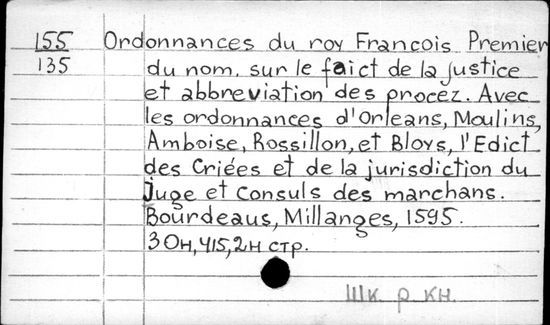 155 Ordonnances du roy Francois Premier
135 du nom. sur le faict de la justice
et abbreviation des procez. Avec
les ordonnances d'Orleans, Moulins,
Amboise, Rossillon, et Bloys, l'Edict
des Criées et de la jurisdiction du
Juge et Consuls des marchans.
Bourdeaus, Millanges, 1595.
30н, 415, 2н стр.
Шк. р кн.